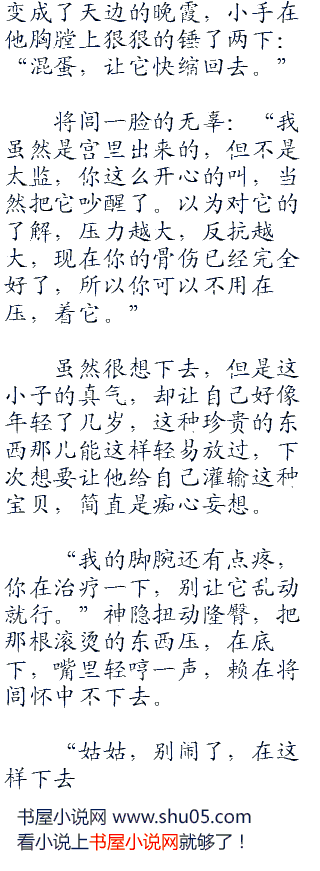 变成了天边的晚霞，小手在
他胸膛上狠狠的锤了两下：
“混蛋，让它快缩回去。”
将闾一脸的无辜：“我
虽然是宫里出来的，但不是
太监，你这么开心的叫，当
然把它吵醒了。以为对它的
了解，压力越大，反抗越
大，现在你的骨伤已经完全
好了，所以你可以不用在
压，着它。”
虽然很想下去，但是这
小子的真气，却让自己好像
年轻了几岁，这种珍贵的东
西那儿能这样轻易放过，下
次想要让他给自己灌输这种
宝贝，简直是痴心妄想。
“我的脚腕还有点疼，
你在治疗一下，别让它乱动
就行。”神隐扭动隆臀，把
那根滚烫的东西压，在底
下，嘴里轻哼一声，赖在将
闾怀中不下去。
“姑姑，别闹了，在这
样下去
书屋小说网 www.shu05.com
看小说上书屋小说网就够了！